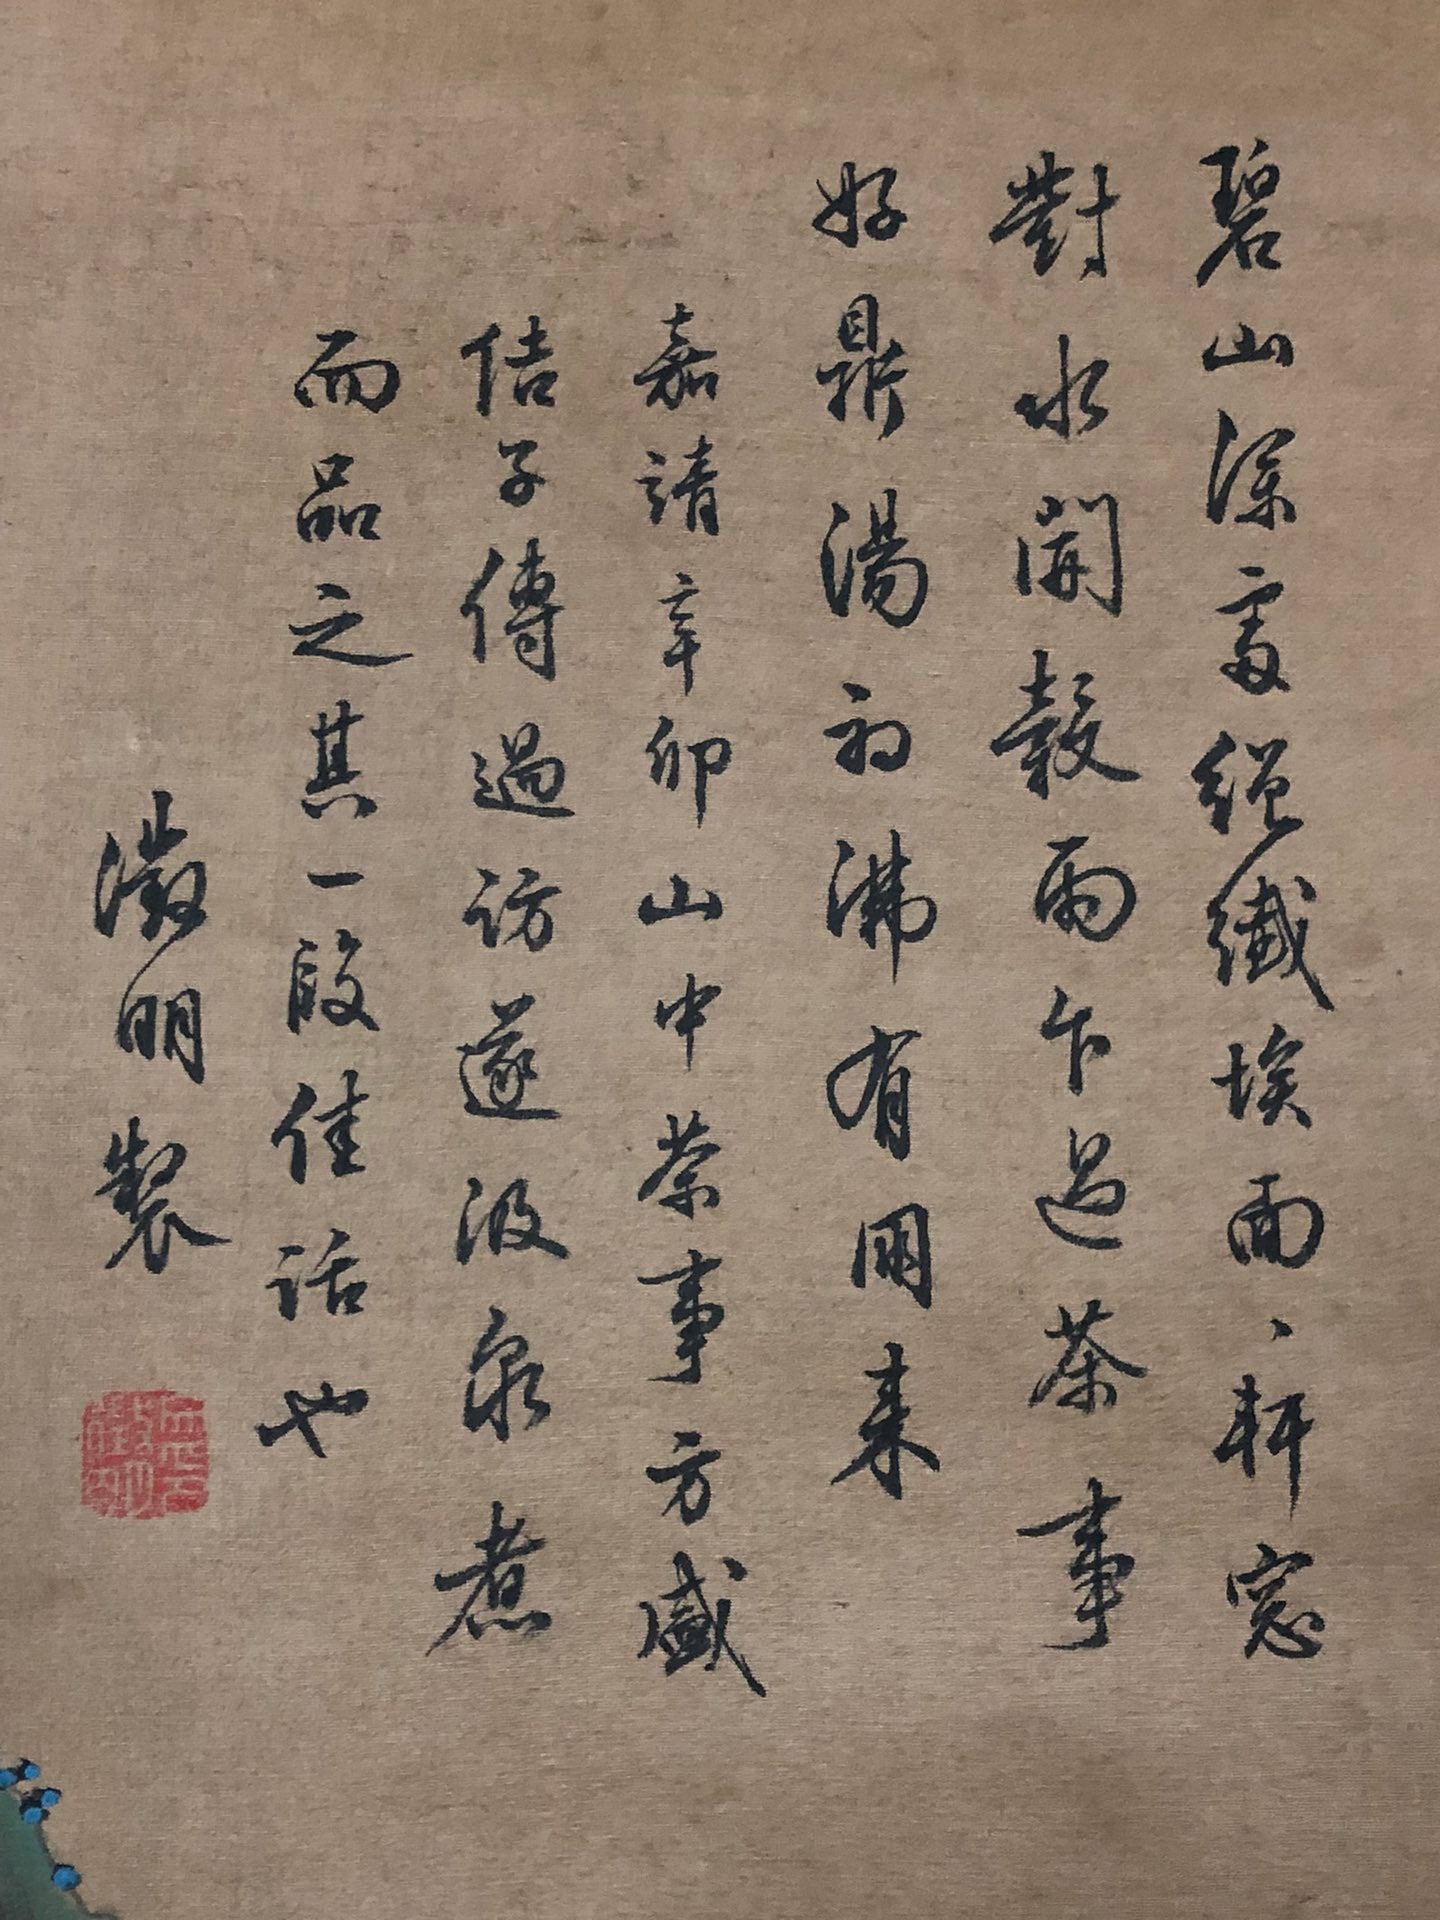 碧山深處絕纖埃面〻軒窓
對水開穀雨乍過茶事
好鼎湯初沸有朋来
嘉靖辛卯山中茶事方盛
佶子傳過訪遂汲泉煮
而品之其一段佳話也
徵明製